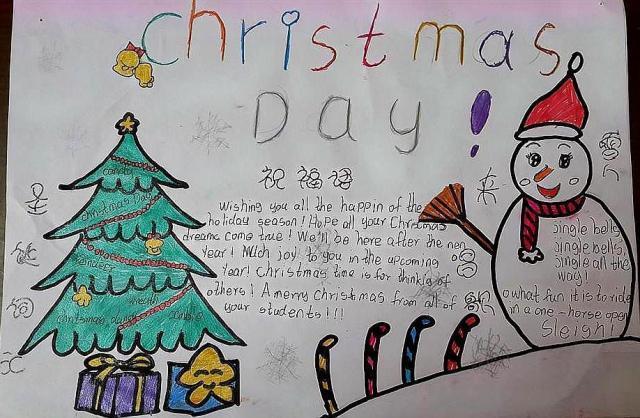 Christmas
Day!
祝福语
Wishing you all the happin of the
holiday season! Hope all your Christmas
dreams come true! We'll be here after the new
Year! Much joy to you in the upcoming
Year! Christmas time is for thinkig of
others! A merry Christmas from all of
your students!!!
candy
Christmas Day
reindeer
wreath
Christmas
jingle bells,
jingle bells,
jingle all the
way!
o what fun it is to ride
in a one-horse open
Sleigh!